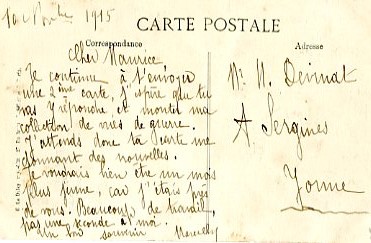 10 Octobre 1915
CARTE POSTALE
Correspondance
Adresse
Cher Maurice,
Je continue à t'envoyer
une 2ème carte, j'espère que tu
vas y répondre, et monter ma
collection de vues de guerre.
J'attends donc ta carte me
donnant des nouvelles.
Je voudrais bien être un mois
plus jeune, car j'étais près
de vous. Beaucoup de travail,
pas une seconde à moi.
Un bon souvenir
Mr M.
A Sergines
Yonne